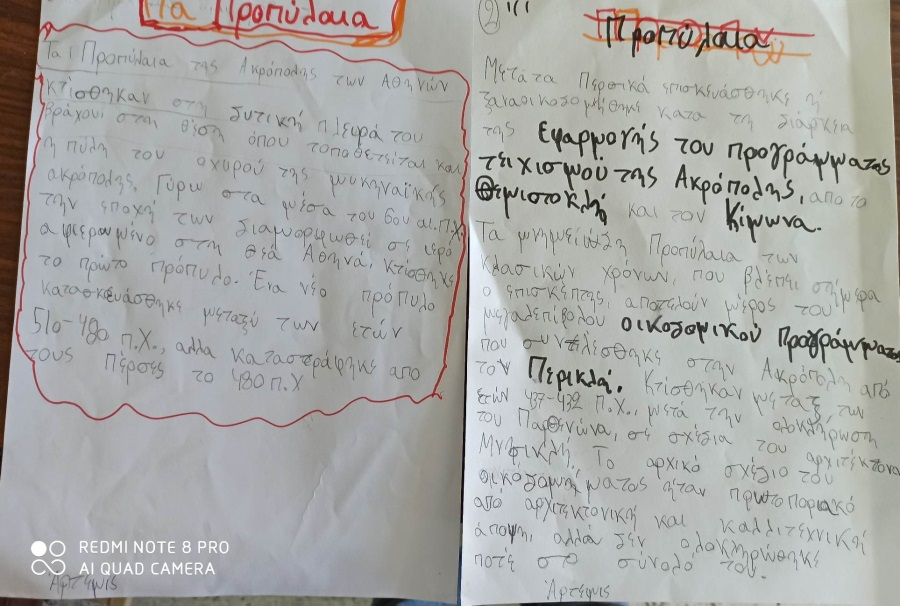 Τα Προπύλαια
Τα Προπύλαια της Ακρόπολης των Αθηνών
κτίσθηκαν στη δυτική πλευρά του
βράχου στη θέση όπου τοποθετείται και
η πύλη του οχυρού της μυκηναϊκής
ακρόπολης. Γύρω στα μέσα του 6ου αι. Π.Χ
την εποχή των διαμορφωθεί σε ιερό
αφιερωμένο στη θεά Αθηνά, κτίσθηκε
το πρώτο πρόπυλο. Ένα νέο πρόπυλο
κατασκευάσθηκε μεταξύ των ετών
510-480 π.Χ., αλλα καταστράφηκε απο
τους Πέρσες το 480 π.Χ
REDMI NOTE 8 PRO
AI QUAD CAMERA
Αρτεμις
2
Προπύλαια
Μετάτα Περσικά επισκευάσθηκε ή
ξαναοικοδομήθηκε κατα τη διάρκεια
της Εφαρμογής του προγράμματος
τειχισμού της Ακρόπολης, απο το
Θεμιστοκλή και τον Κίμωνα.
Τα μνημειώδη Προπύλαια των
κλασικών χρόνων, που βλέπει σήμερα
ο επισκέπτης, αποτελούν μέρος του
μεγαλεπίβολου οικοδομικού Προγράμματος
που συντελέσθηκε στην Ακρόπολη από
τον Περικλή. Κτίσθηκαν μεταξύ των
ετών 437-432 π.Χ., μετά την ολοκλήρωση
του Παρθενώνα, σε σχέδια του αρχιτέκτονα
Μνησικλή. Το αρχικό σχέδιο του
οικοδομήματος ήταν πρωτοποριακό
από αρχιτεκτονική και καλλιτεχνική
άποψη, αλλά δεν ολοκληρώθηκε
ποτέ στο σύνολό του.
Άρτεμις